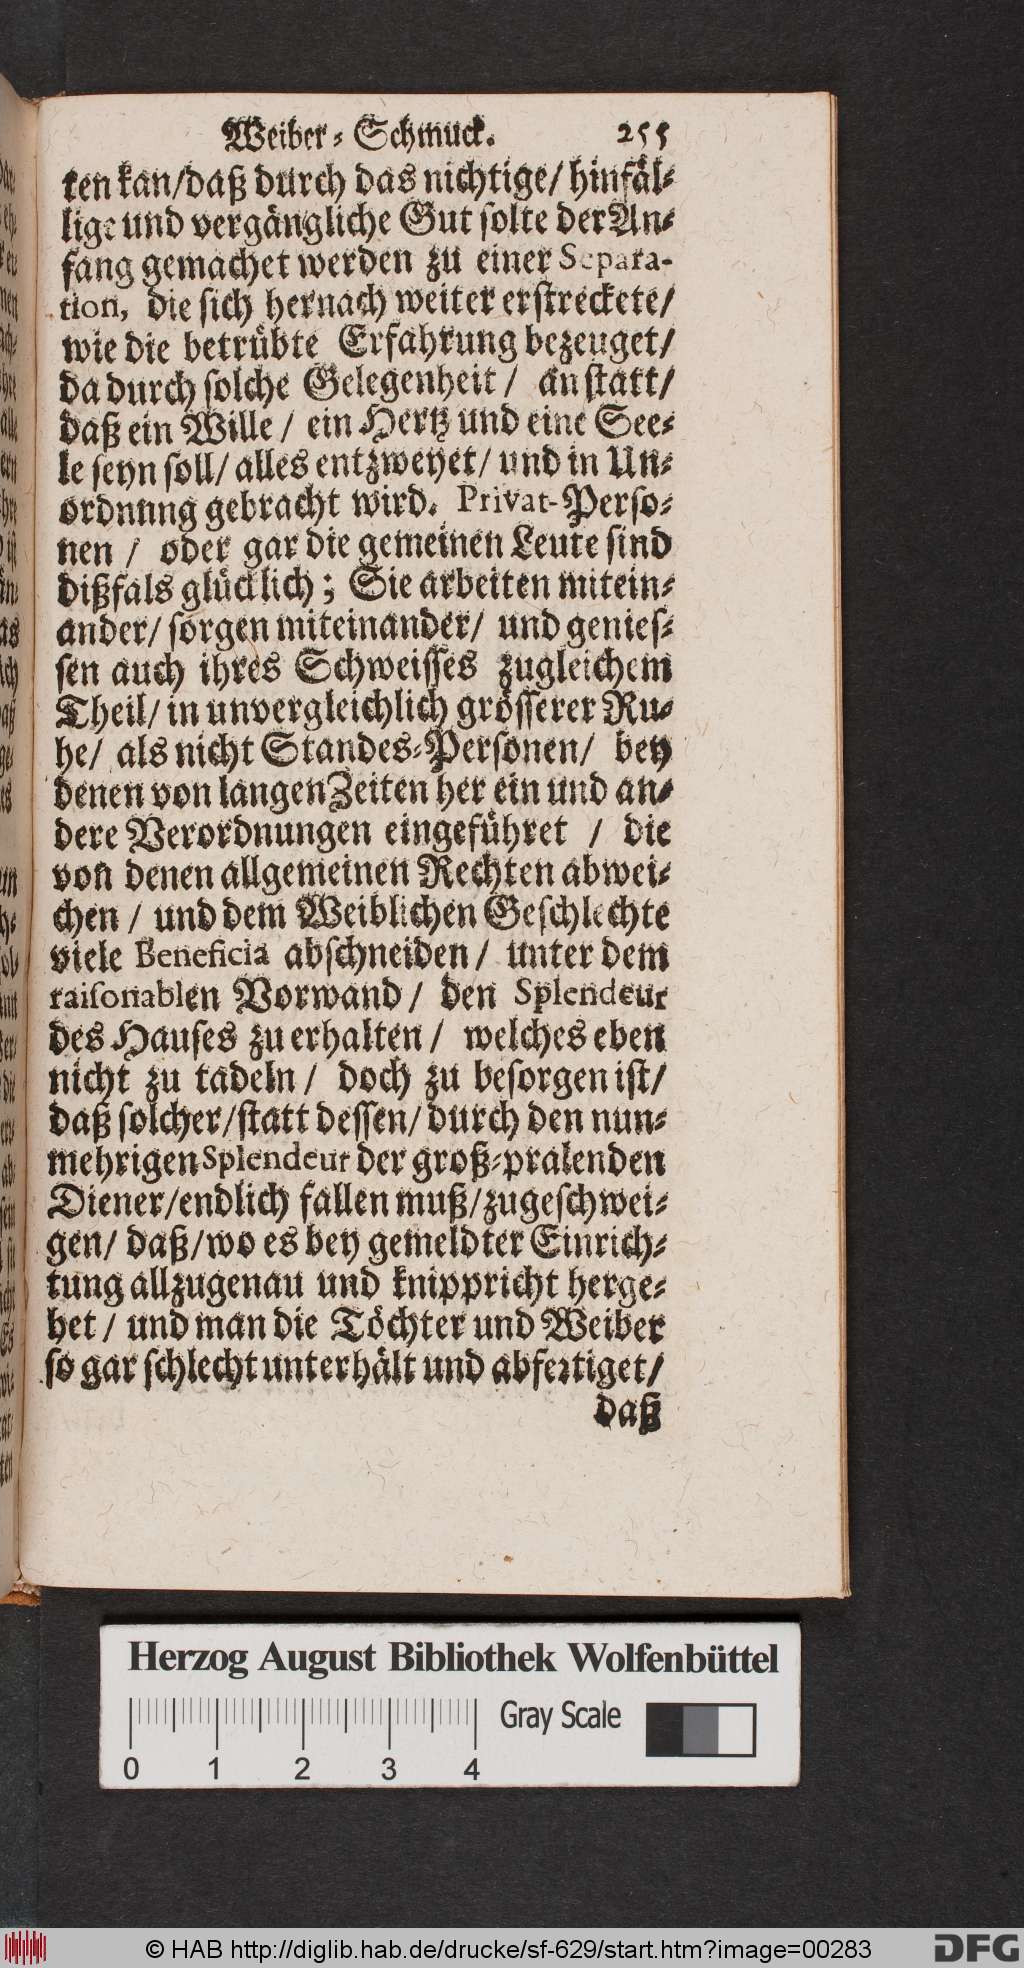 Weiber-Schmuck. 255
ten kan/daß durch das nichtige/ hinfäl-
lige und vergängliche Gut solte der An-
fang gemachet werden zu einer Separa-
tion, die sich hernach weiter erstreckete/
wie die betrübte Erfahrung bezeuget/
da durch solche Gelegenheit/ an statt/
daß ein Wille/ ein Hertz und eine See-
le seyn soll/ alles entzweyet/ und in Un-
ordnung gebracht wird. Privat-Perso-
nen/ oder gar die gemeinen Leute sind
dißfals glücklich; Sie arbeiten mitein-
ander/ sorgen miteinander/ und genies-
sen auch ihres Schweisses zugleichem
Theil/ in unvergleichlich grösserer Ru-
he/ als nicht Standes-Personen/ bey
denen von langen Zeiten her ein und an-
dere Verordnungen eingeführet / die
von denen allgemeinen Rechten abwei-
chen/ und dem Weiblichen Geschlechte
viele Beneficia abschneiden/ unter dem
raisonablen Vorwand/ den Splendeur
des Hauses zu erhalten/ welches eben
nicht zu tadeln/ doch zu besorgen ist/
daß solcher/statt dessen/durch den nun-
mehrigen Splendeur der groß-pralenden
Diener/endlich fallen muß/zugeschwei-
gen/ daß/wo es bey gemeldter Einrich-
tung allzugenau und knippricht herge-
het/ und man die Töchter und Weiber
so gar schlecht unterhält und abfertiget/
daß
Herzog August Bibliothek Wolfenbüttel
Gray Scale
0 1 2 3 4
© HAB http://diglib.hab.de/drucke/sf-629/start.htm?image=00283
DFG